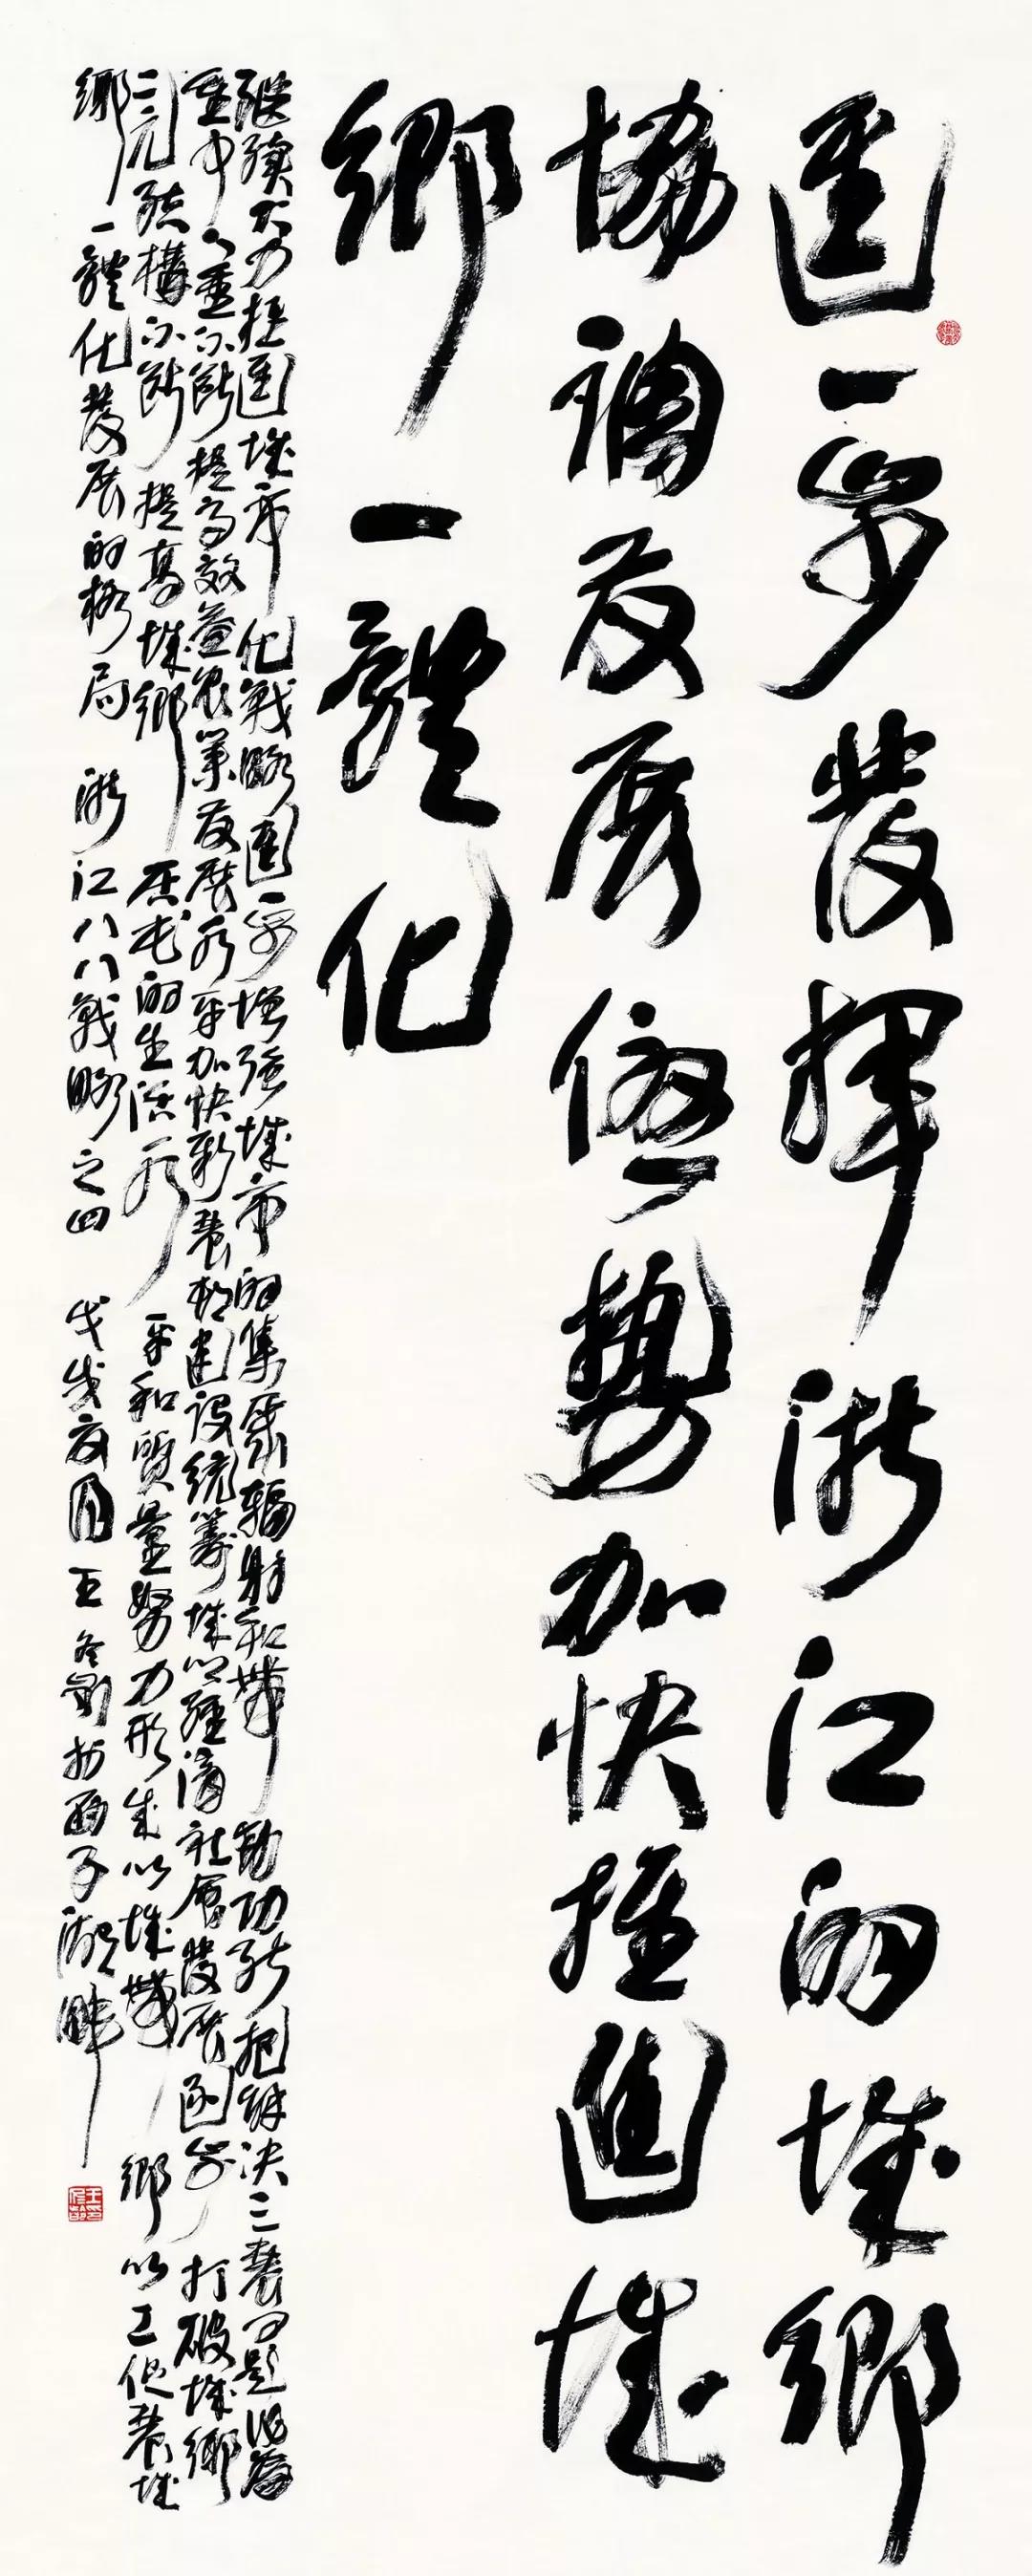 進一步發揮浙江的城鄉
協調發展優勢加快推進城
鄉一體化
繼續大力推進城市化戰略進一步增強城市的集聚輻射和帶動功能把解決三農問題作為
重中之重不斷提高效益農業發展水平加快新農村建設統籌城鄉經濟社會發展逐步打破城鄉
二元結構不斷提高城鄉居民的生活水平和質量努力形成以城帶鄉以工促農城
鄉一體化發展的格局 浙江八八戰略之四 戊戌夏月王冬齡於西子湖畔